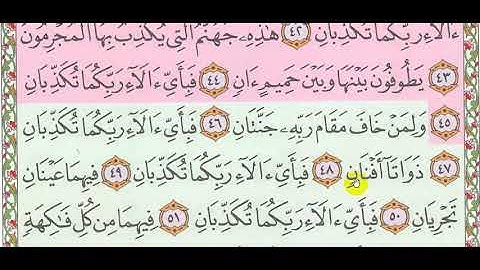 ءَالَآءِ رَبِّكُمَا تُكَذِّبَانِ ٤٢ هَٰذِهِۦ جَهَنَّمُ ٱلَّتِي يُكَذِّبُ بِهَا ٱلْمُجْرِمُونَ
٤٣ يَطُوفُونَ بَيْنَهَا وَبَيْنَ حَمِيمٍ ءَانٍ ٤٤ فَبِأَيِّ ءَالَآءِ رَبِّكُمَا تُكَذِّبَانِ
٤٥ وَلِمَنْ خَافَ مَقَامَ رَبِّهِۦ جَنَّتَانِ ٤٦ فَبِأَيِّ ءَالَآءِ رَبِّكُمَا تُكَذِّبَانِ
٤٧ ذَوَاتَآ أَفْنَانٍ ٤٨ فَبِأَيِّ ءَالَآءِ رَبِّكُمَا تُكَذِّبَانِ ٤٩ فِيهِمَا عَيْنَانِ
تَجْرِيَانِ ٥٠ فَبِأَيِّ ءَالَآءِ رَبِّكُمَا تُكَذِّبَانِ ٥١ فِيهِمَا مِن كُلِّ فَٰكِهَةٍ